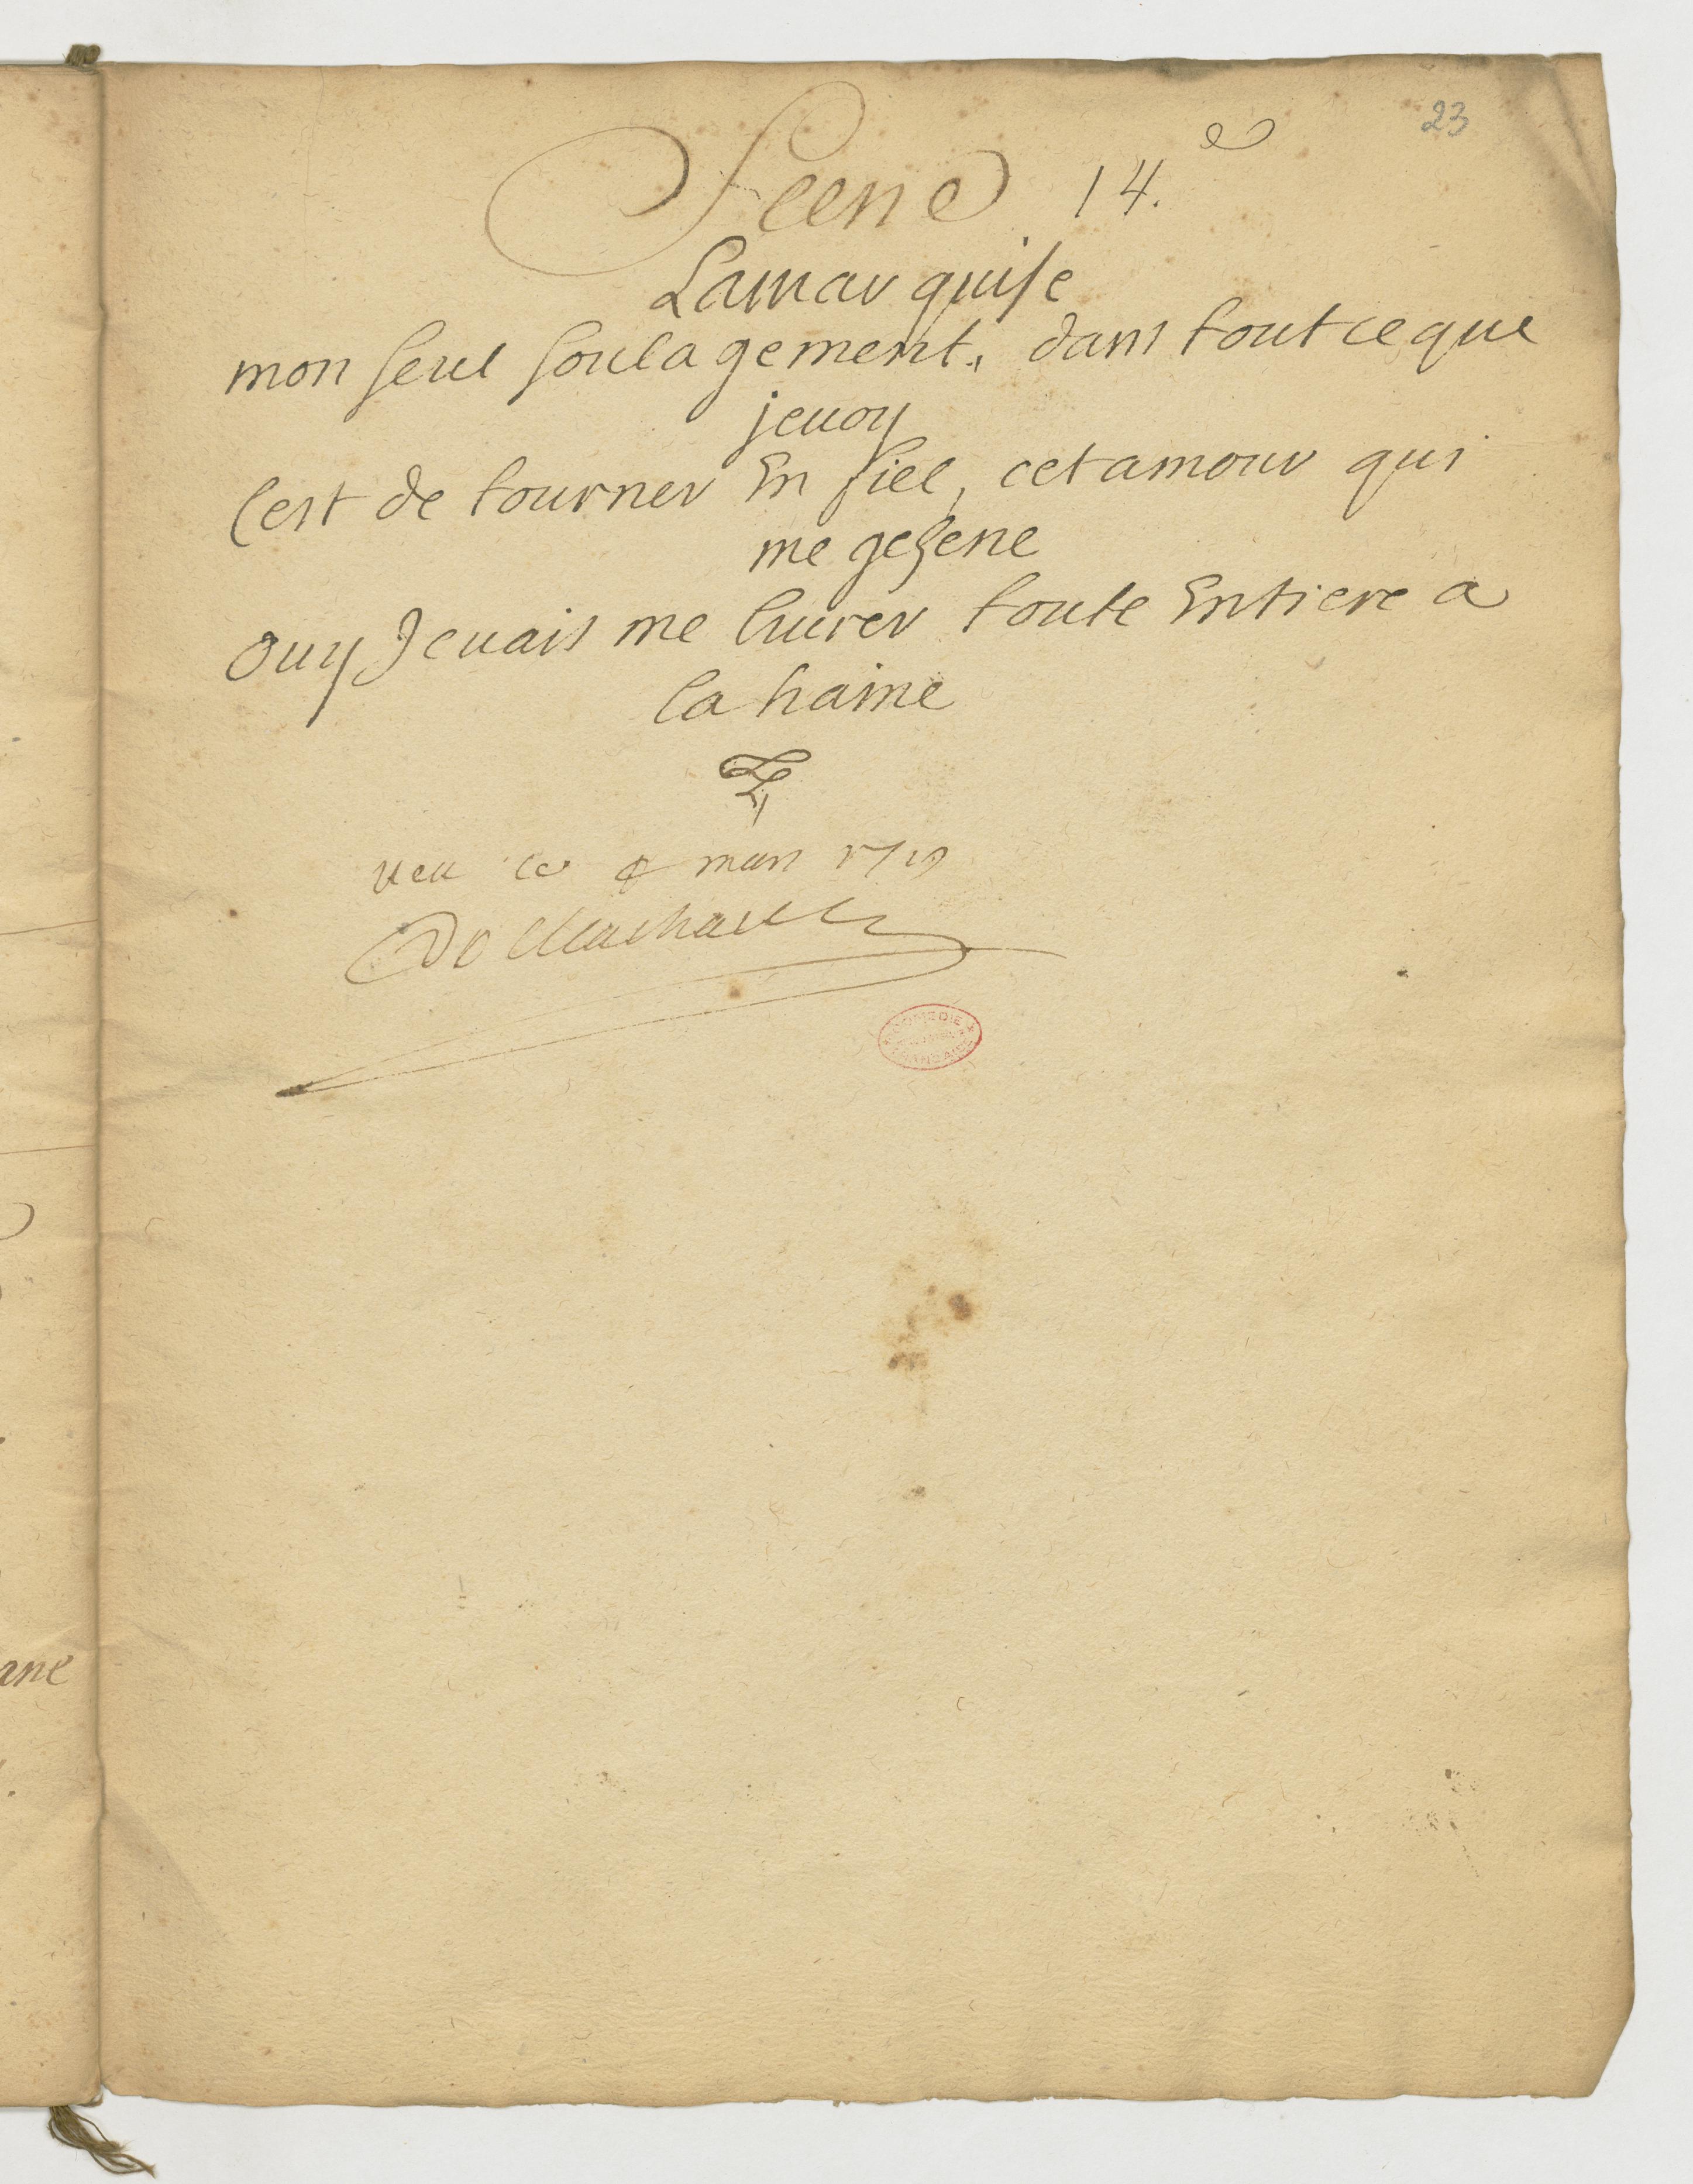 23
Scene 14.e
Lamarquise
mon seul soulagement, dans tout ce que
jevoy
Cest de tourner En fiel, cet amour qui
me gesene
Ouy Jevais me livrer toute Entiere a
la haine
veu ce mars
De Machault
COMEDIE
FRANCAISE
ane